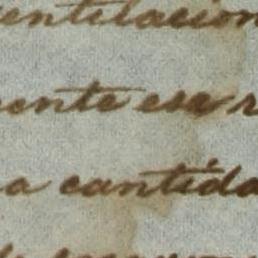 entilacion
ente esa r
a cantida